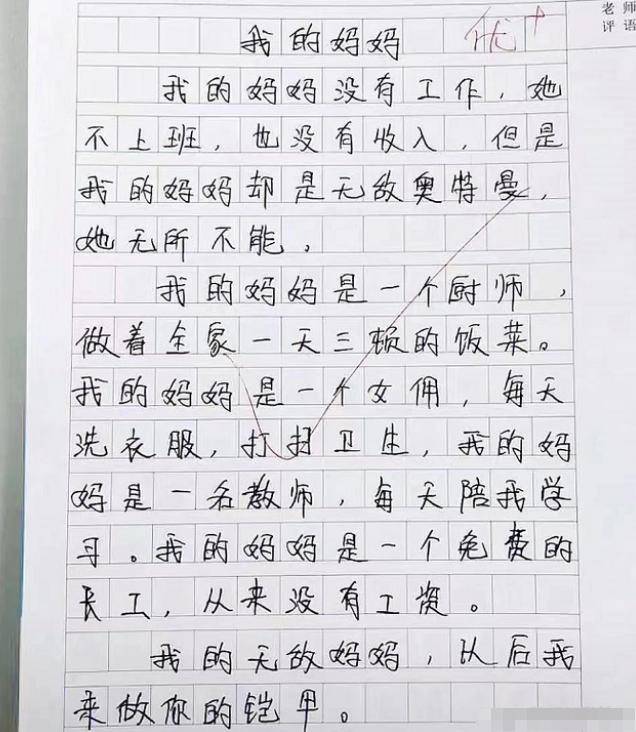 老师
评语
我的妈妈 优+
我的妈妈没有工作，她
不上班，也没有收入，但是
我的妈妈却是无敌奥特曼，
她无所不能。
我的妈妈是一个厨师，
做着全家一天三赖的饭菜。
我的妈妈是一个女佣，每天
洗衣服，打扫卫生，我的妈
妈是一名教师，每天陪我学
习。我的妈妈是一个免费的
长工，从来没有工资。
我的无敌妈妈，以后我
来做你的铠甲。